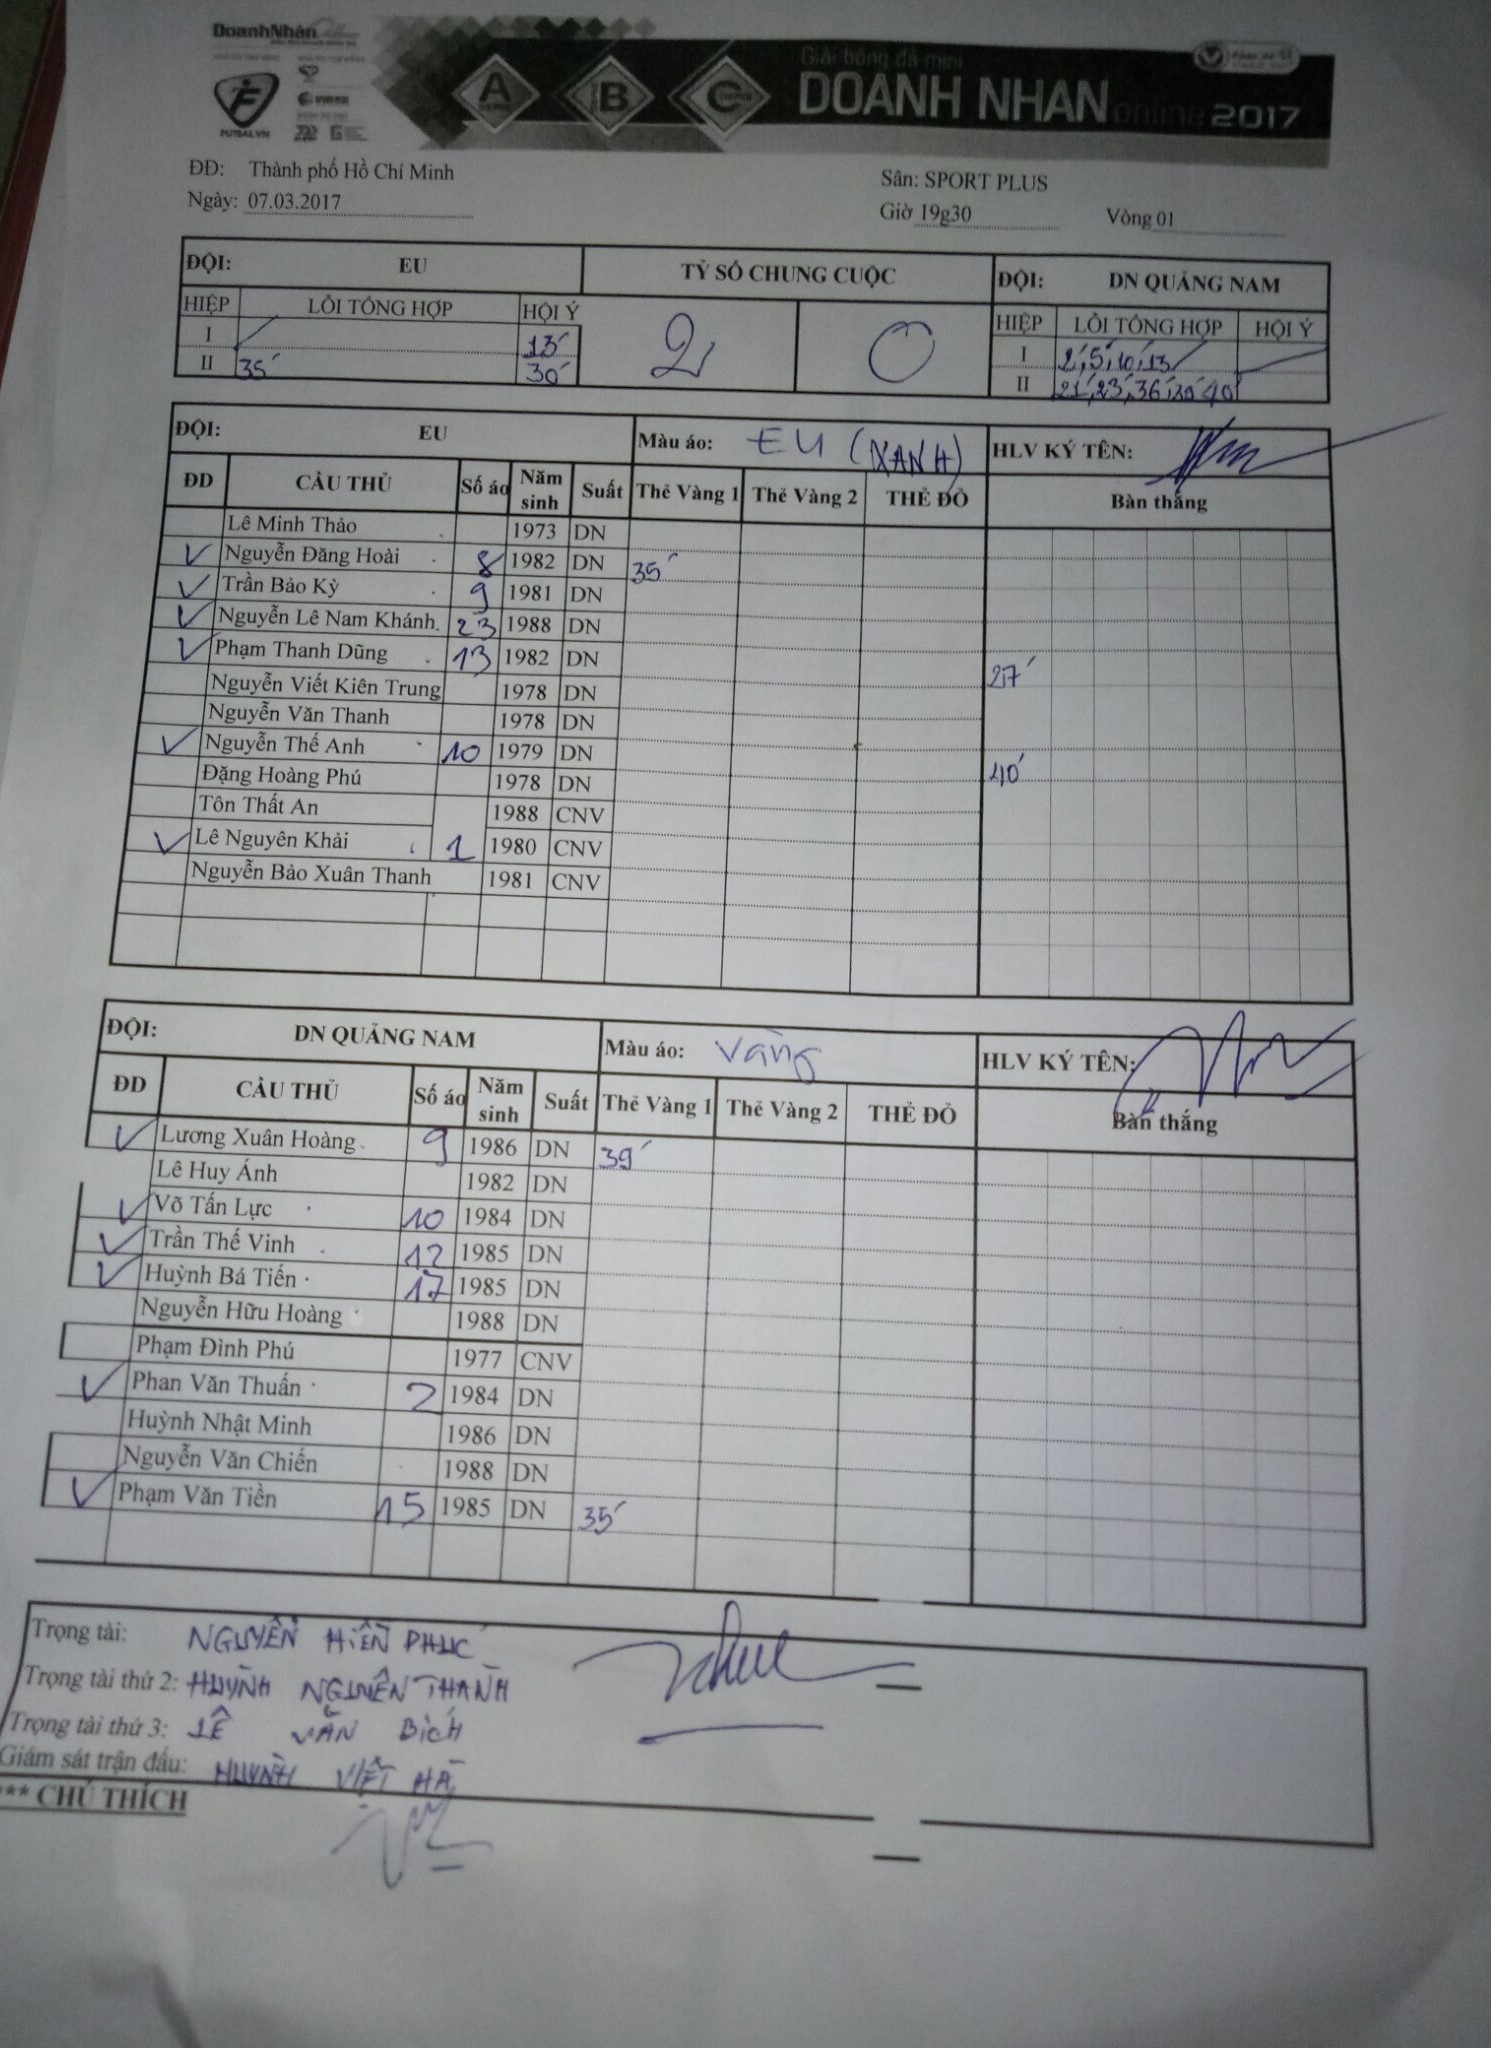 DoanhNhân
Giải bóng đá mini
A B C DOANH NHAN online 2017
FUTSAL.VN
ĐD: Thành phố Hồ Chí Minh
Sân: SPORT PLUS
Ngày: 07.03.2017
Giờ 19g30 Vòng 01
ĐỘI: EU TỶ SỐ CHUNG CUỘC ĐỘI: DN QUẢNG NAM
HIỆP LỖI TỔNG HỢP HỘI Ý 2 0 HIỆP LỖI TỔNG HỢP HỘI Ý
I 13' I 2', 5', 10', 13'
II 35' 30' II 21', 23', 36', 39' 40'
ĐỘI: EU Màu áo: EU (XANH) HLV KÝ TÊN:
ĐD CẦU THỦ Số áo Năm sinh Suất Thẻ Vàng 1 Thẻ Vàng 2 THẺ ĐỎ Bàn thắng
Lê Minh Thảo 1973 DN
✓ Nguyễn Đăng Hoài 8 1982 DN 35'
✓ Trần Bảo Kỳ 9 1981 DN
✓ Nguyễn Lê Nam Khánh 23 1988 DN
✓ Phạm Thanh Dũng 13 1982 DN 27'
Nguyễn Viết Kiên Trung 1978 DN
Nguyễn Văn Thanh 1978 DN
✓ Nguyễn Thế Anh 10 1979 DN 40'
Đặng Hoàng Phú 1978 DN
Tôn Thất An 1988 CNV
✓ Lê Nguyên Khải 1 1980 CNV
Nguyễn Bảo Xuân Thanh 1981 CNV
ĐỘI: DN QUẢNG NAM Màu áo: Vàng HLV KÝ TÊN:
ĐD CẦU THỦ Số áo Năm sinh Suất Thẻ Vàng 1 Thẻ Vàng 2 THẺ ĐỎ Bàn thắng
✓ Lương Xuân Hoàng 9 1986 DN 39'
Lê Huy Ánh 1982 DN
✓ Võ Tấn Lực 10 1984 DN
✓ Trần Thế Vinh 12 1985 DN
✓ Huỳnh Bá Tiến 17 1985 DN
Nguyễn Hữu Hoàng 1988 DN
Phạm Đình Phú 1977 CNV
✓ Phan Văn Thuấn 2 1984 DN
Huỳnh Nhật Minh 1986 DN
Nguyễn Văn Chiến 1988 DN
✓ Phạm Văn Tiền 15 1985 DN 35'
Trọng tài: NGUYỄN HIỀN PHÚC
Trọng tài thứ 2: HUỲNH NGUYÊN THANH
Trọng tài thứ 3: LÊ VĂN BÍCH
Giám sát trận đấu: HUỲNH VIỆT HÀ
*** CHÚ THÍCH